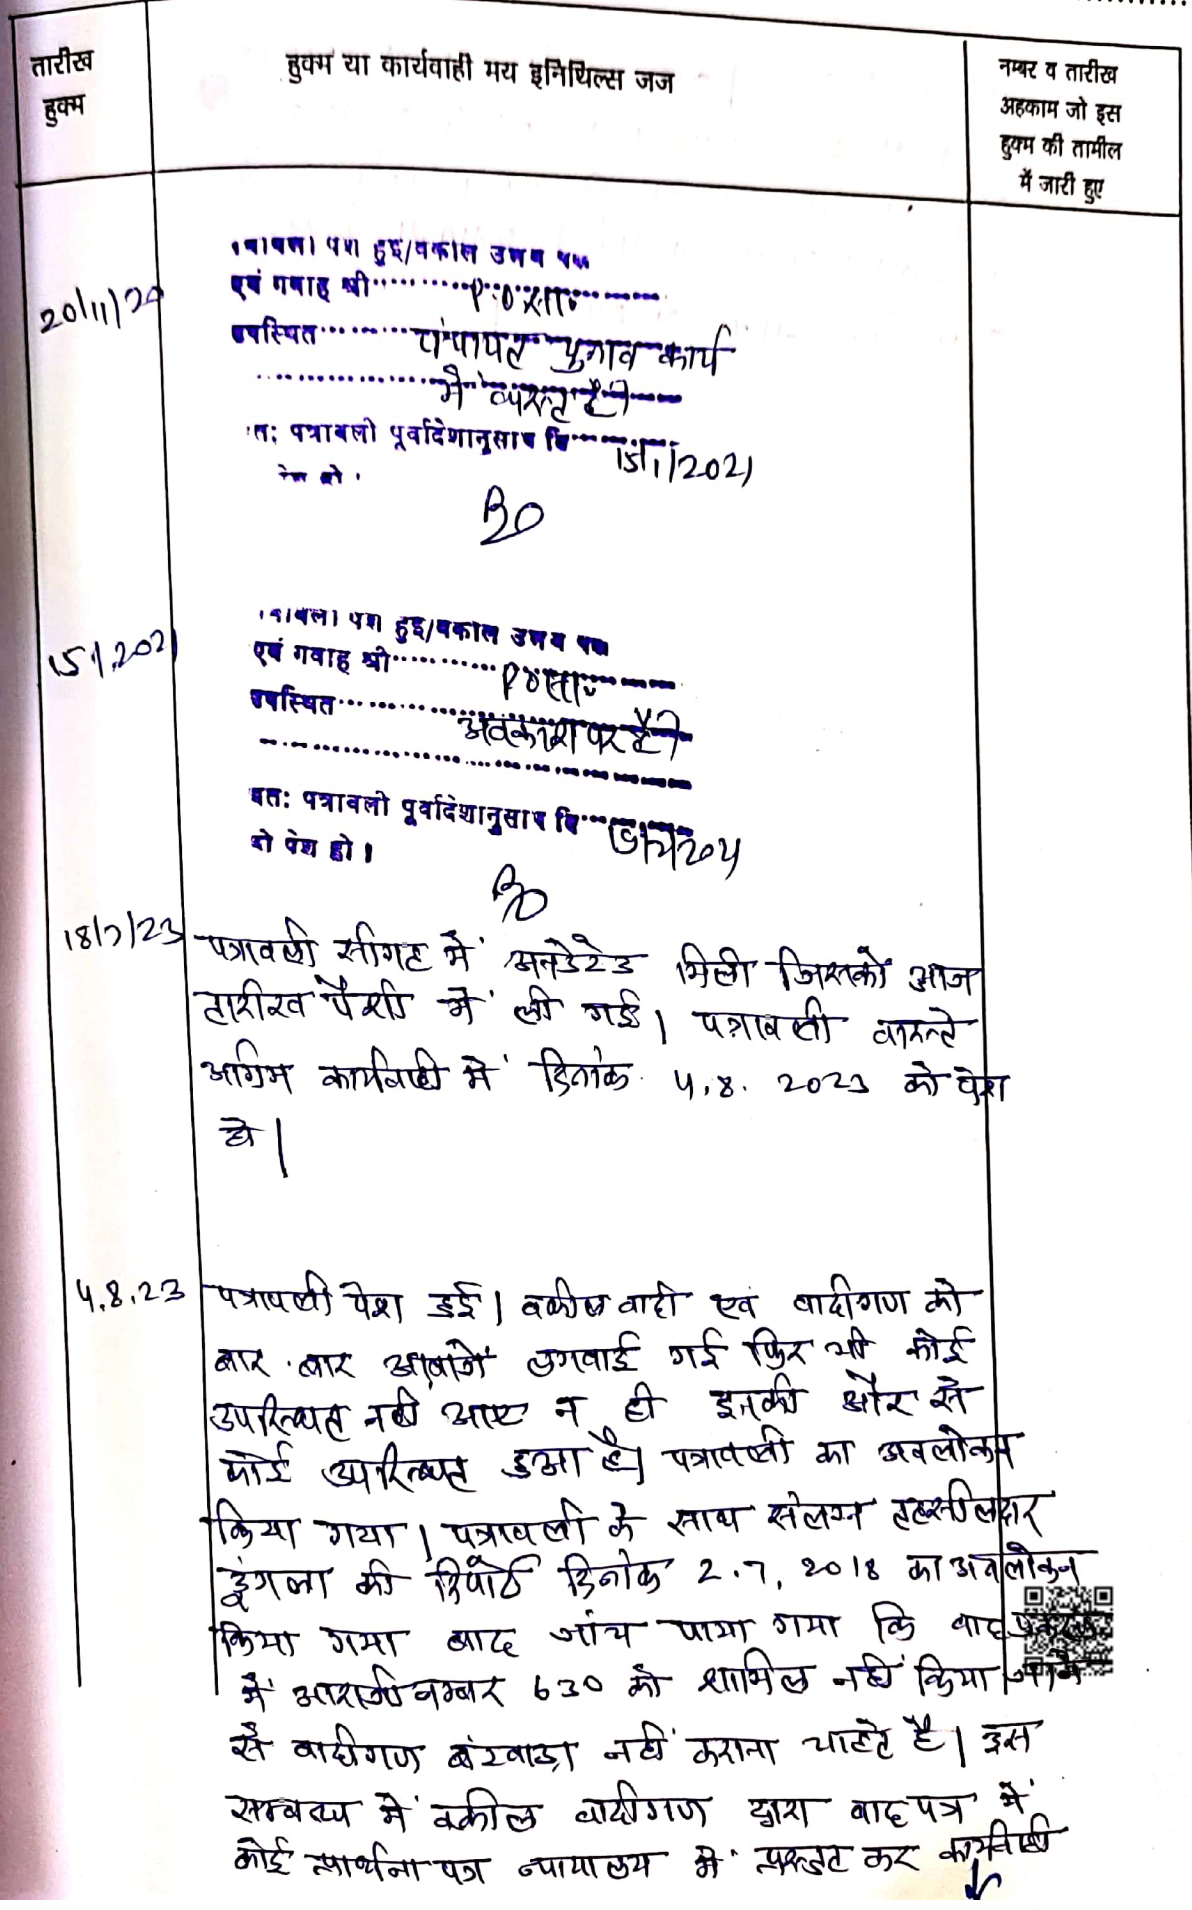 तारीख
हुक्म
हुक्म या कार्यवाही मय इनिथिल्स जज
नम्बर व तारीख
अहकाम जो इस
हुक्म की तामील
में जारी हुए
20/11/20
पत्रावली पेश हुई/वकील उभय पक्ष
एवं गवाह श्री P.O. सा.
उपस्थित पंचायत चुनाव कार्य
में व्यस्त है।
अत: पत्रावली पूर्वादेशानुसार दि 15/1/2021
15/1/2021
पत्रावली पेश हुई/वकील उभय पक्ष
एवं गवाह श्री P.O. सा.
उपस्थित अवकाश पर है।
अत: पत्रावली पूर्वादेशानुसार दि
को पेश हो।
18/7/23
पत्रावली सीगट में अनडेटेड मिली जिसको आज
तारीख पेशी में ली गई। पत्रावली वास्ते
अग्रिम कार्यवाही में दिनांक 4.8.2023 को पेश
हो।
4.8.23
पत्रावली पेश हुई। वकील वादी एवं वादीगण को
बार बार आवाजें लगवाई गई फिर भी कोई
उपस्थित नही आए न ही इनकी और से
कोई उपस्थित हुआ है। पत्रावली का अवलोकन
किया गया। पत्रावली के साथ संलग्न तहसीलदार
डूंगला की रिपोर्ट दिनांक 2.7.2018 का अवलोकन
किया गया बाद जांच पाया गया कि वाद
में आराजी नम्बर 630 को शामिल नहीं किया जाने
से वादीगण बंटवाड़ा नहीं कराना चाहते है। इस
सम्बन्ध में वकील वादीगण द्वारा वाद पत्र में
कोई प्रार्थना पत्र न्यायालय में प्रस्तुत कर कार्यवाही